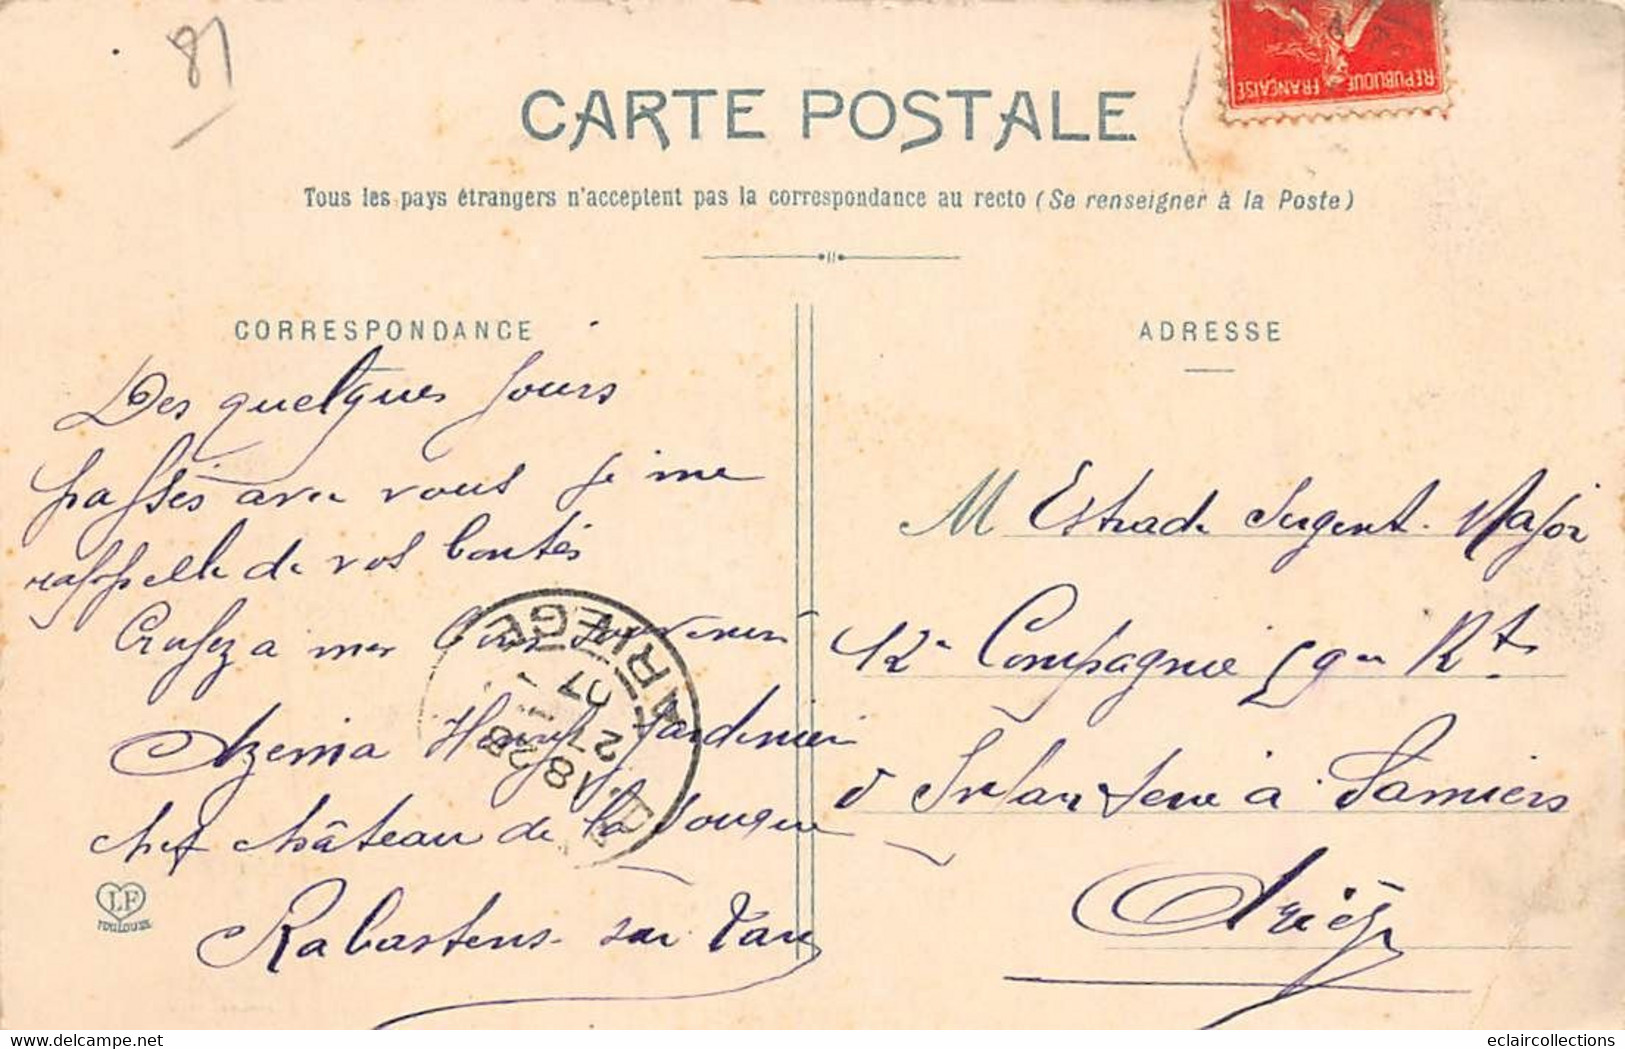 81
REPUBLIQUE FRANÇAISE
CARTE POSTALE
Tous les pays étrangers n'acceptent pas la correspondance au recto (Se renseigner à la Poste)
CORRESPONDANCE
Des quelques jours
passés avec vous je me
rappelle de vos bontés
mes bons souvenirs
Azema Henry Jardinier
chef château de la
Rabastens sur Tarn
LF
TOULOUSE
ADRESSE
M Estrade Sergent Major
12e Compagnie 59e Rt
d'Infanterie à Pamiers
Ariège
ARIEGE
18 28
27 11
07
eclaircollections